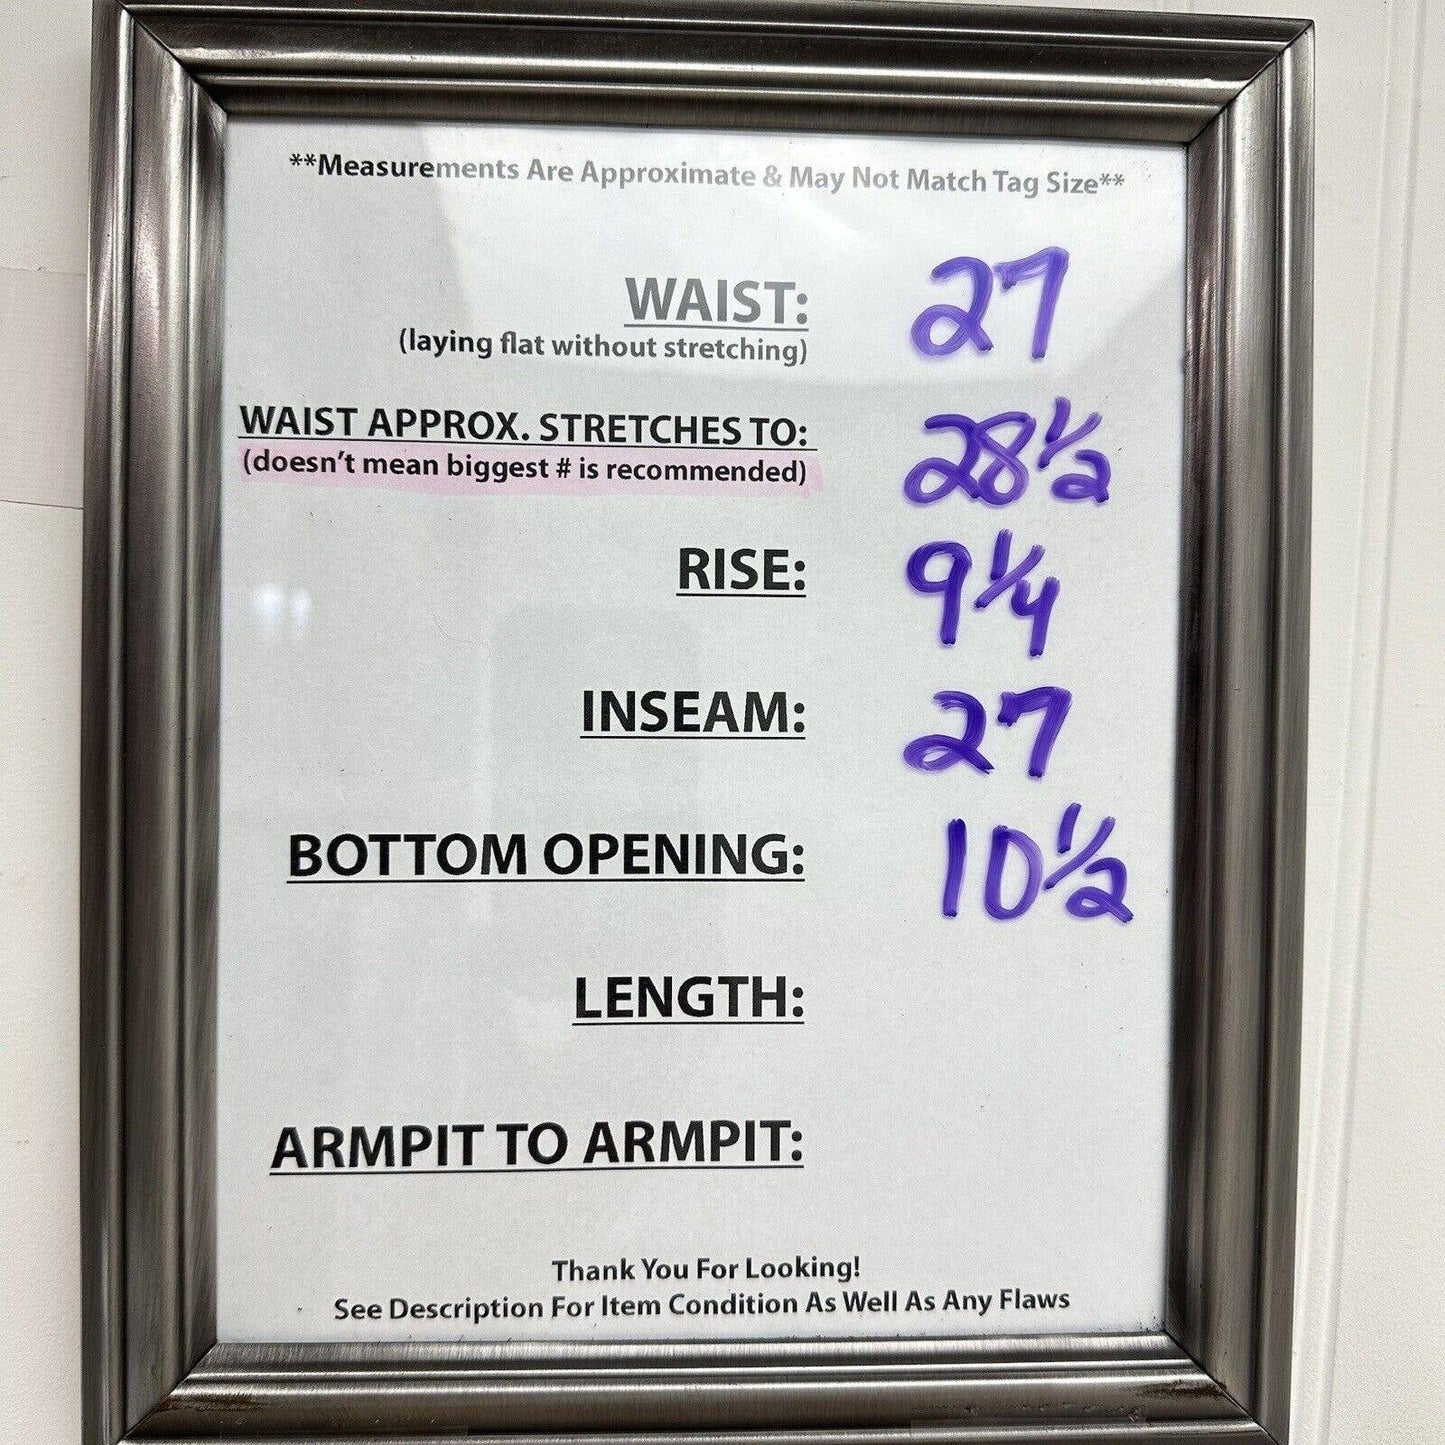 **Measurements Are Approximate & May Not Match Tag Size**
WAIST: 27
(laying flat without stretching)
WAIST APPROX. STRETCHES TO: 28 1/2
(doesn't mean biggest # is recommended)
RISE: 9 1/4
INSEAM: 27
BOTTOM OPENING: 10 1/2
LENGTH:
ARMPIT TO ARMPIT:
Thank You For Looking!
See Description For Item Condition As Well As Any Flaws